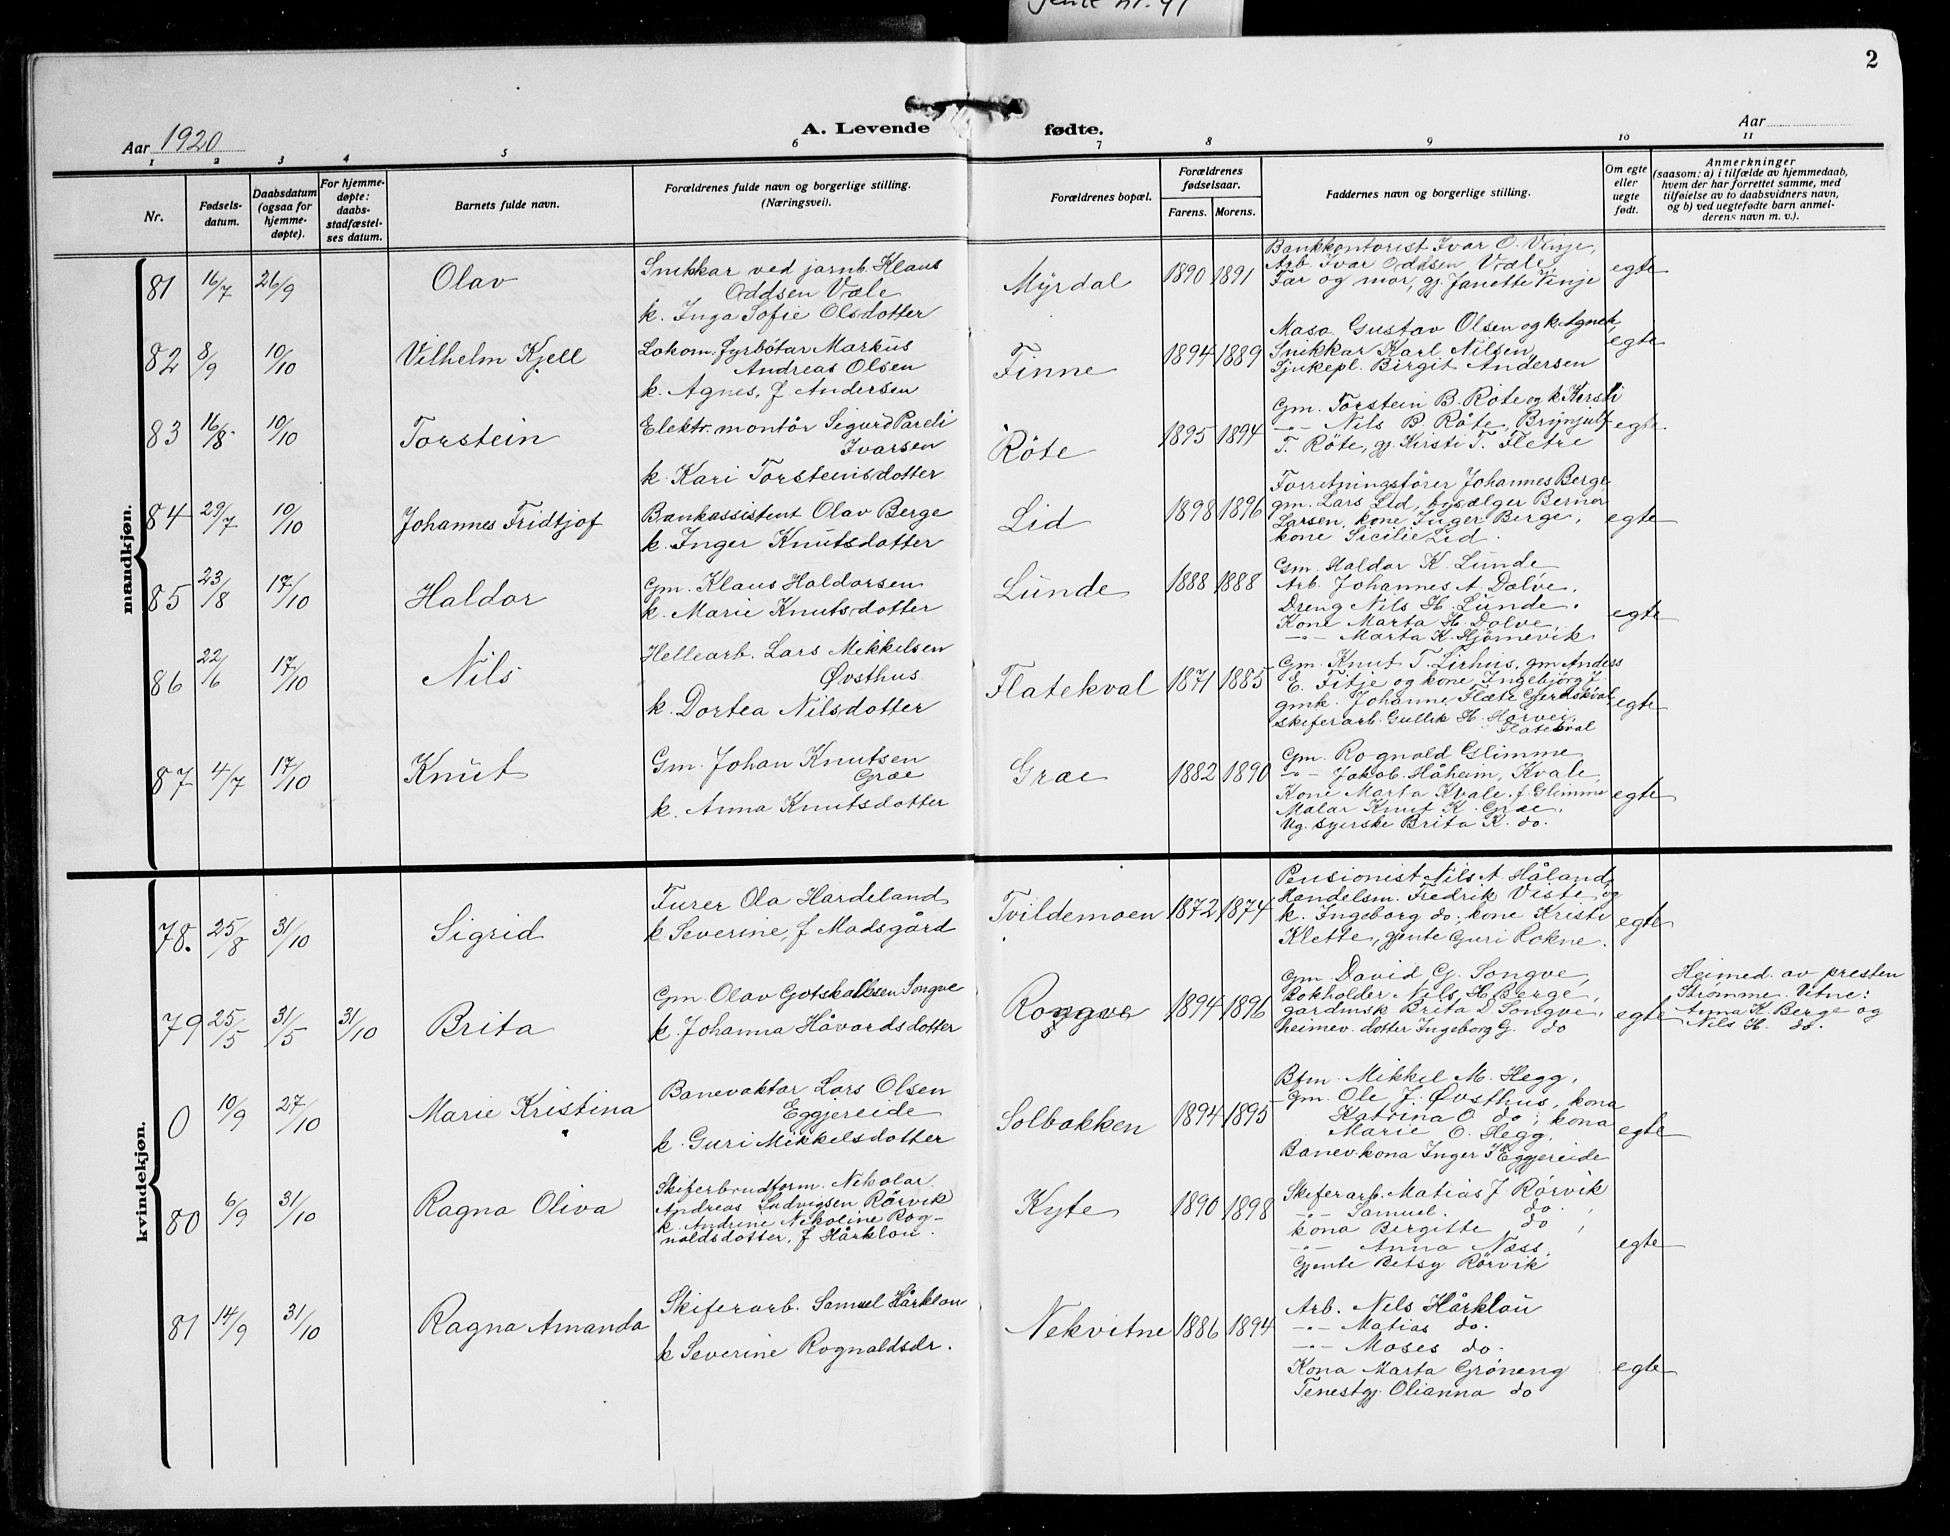 2
Aar 1920
A. Levende fødte.
Aar
1 2 3 4 5 6 7 8 9 10 11
Nr.
Fødsels-
datum.
Daabsdatum
(ogsaa for
hjemme-
døpte).
For hjemme-
døpte:
daabs-
stadfæstel-
ses datum.
Barnets fulde navn.
Forældrenes fulde navn og borgerlige stilling.
(Næringsvei).
Forældrenes bopæl.
Forældrenes
fødselsaar.
Farens. Morens.
Faddernes navn og borgerlige stilling.
Om egte
eller
uegte
født.
Anmerkninger
(saasom: a) i tilfælde av hjemmedaab,
hvem der har forrettet samme, med
tilføielse av to daabsvidners navn,
og b) ved uegtefødte barn anmel-
derens navn m. v.).
mandkjøn.
81 16/7 26/9 Olav
Snikkar ved jarnb. Klaus
Oddsen Væle
k. Inga Sofie Olsdotter
Myrdal 1890 1891
Bankkontorist Ivar O. Vinje,
Arb. Ivar Oddsen Væle,
Far og mor, gj. Janette Vinje
egte
82 8/9 10/10 Vilhelm Kjell
Lokom. fyrbötar Markus
Andreas Olsen
k. Agnes, f Andersen
Finne 1894 1889
Gustav Olsen og k.
Snikkar Karl Nilsen,
Sjukepl. Birgit Andersen
egte
83 16/8 10/10 Torstein
Elektr. montör Sigurd Pareli
Ivarsen
k. Kari Torsteinsdotter
Röte 1895 1894
Gm. Torstein B. Röte og k Kersti
-"- Nils B. Röte, Brynjulf
T. Röte, gj. Kirsti T. Fletre
egte.
84 29/7 10/10 Johannes Fridtjof
Bankassistent Olav Berge
k. Inger Knutsdotter
Lid 1898 1896
Forretningsförer Johannes Berge
gm. Lars Lid, bysælger Berner
Larsen, kone Inger Berge,
kone Sicilie Lid.
egte
85 23/8 17/10 Haldor
Gm. Klaus Haldorsen
k. Marie Knutsdotter
Lunde 1888 1888
Gm. Haldor K. Lunde
Arb. Johannes A. Dolve,
Dreng Nils H. Lunde.
Kone Marta H. Dolve,
-"- Marta K. Hjörnevik
egte
86 22/6 17/10 Nils
Hellearb. Lars Mikkelsen
Øvsthus
k. Dortea Nilsdotter
Flatekval 1871 1885
Gm. Knut T. Lirhus, gm Anders
E. Fitje og kone Ingebjörg J.
gmk. Johanne Flæte Gjerdskval
skiferarb. Gullik H. Horvei,
Flatekval
egte
87 4/7 17/10 Knut
Gm. Johan Knutsen
Græe
k. Anna Knutsdotter
Græe 1882 1890
Gm. Rognald Glimme
-"- Jakob Håheim, Kvale,
Kone Marta Kvale. f. Glimme
Malar Knut K. Græe,
Ug. syerske Brita K. do.
egte
kvindekjøn.
78. 25/8 31/10 Sigrid
Furer Ola Hardeland
k Severine, f Madsgård
Tvildemoen 1872 1874
Pensionist Nils A Håland,
Handelsm. Fredrik Viste og
k. Ingeborg do. kone Kristi
Klette, gjente Guri Rokne.
egte
79 25/5 31/5 31/10 Brita
Gm. Olav Gotskalksen Songve
k. Johanna Håvardsdotter
Rongve 1894 1896
Gm. David G. Songve,
Bokholder Nils H Berge,
gardmsk Brita D Songve,
heimev. dotter Ingeborg G. do
egte
Heimed. av presten
Strømme. Vitne:
Anna K. Berge og
Nils H. do.
0 10/9 27/10 Marie Kristina
Banevaktar Lars Olsen
Eggjereide
k. Guri Mikkelsdotter
Solbakken 1894 1895
Bfm. Mikkel M. Hegg,
Gm. Ole J. Øvsthus, kona
Katrina O. do; kona
Marie O. Hegg.
Banev.kona Inger Eggjereide
egte
80 6/9 31/10 Ragna Oliva
Skiferbrudform. Nikolar
Andreas Ludvigsen Rörvik
k. Andrine Nikoline Rog-
noldsdotter, f Hårklau.
Kyte 1890 1898
Skiferarb. Matias J Rörvik
-"- Samuel. do.
kona Bergitte do
-"- Anna Næss.
Gjente Betsy Rörvik
egte
81 14/9 31/10 Ragna Amanda
Skiferarb. Samuel Hårklau
k Severine Rognaldsdr.
Nekvitne 1886 1894
Arb. Nils Hårklau
-"- Matias do.
-"- Moses do.
Kona Marta Gröneng
Tenestgj. Olianna do
egte